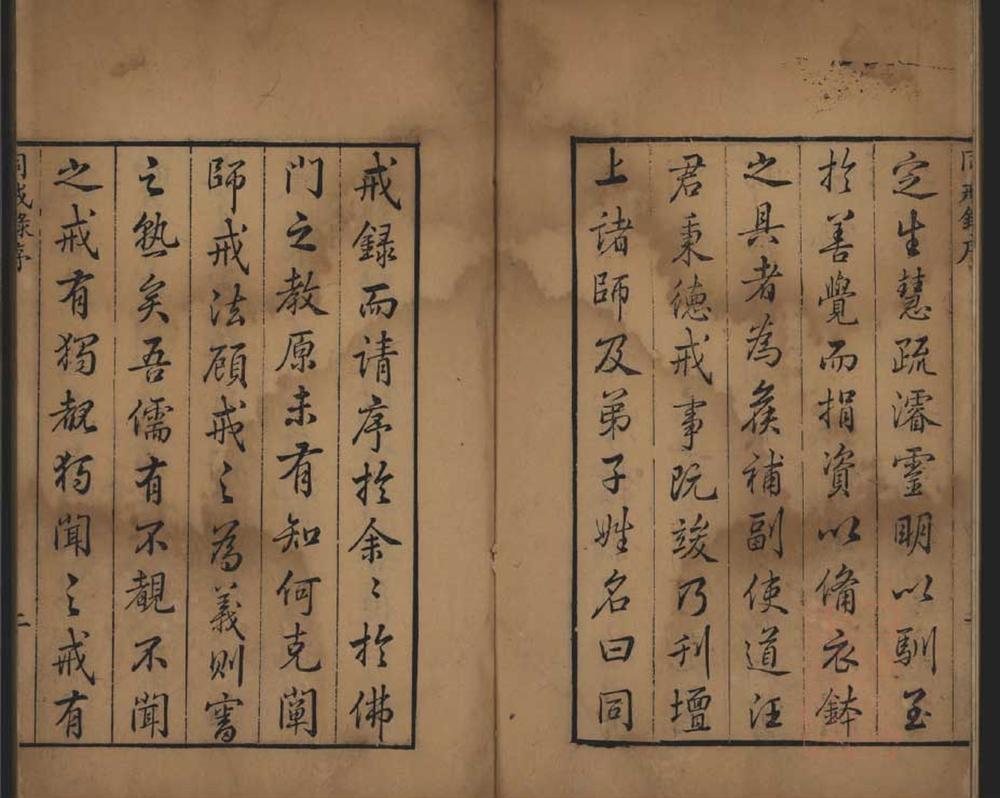 定生慧疏濬靈明以馴至
於善覺而捐資以備衣鉢
之具者為矦補副使道汪
君秉德戒事既竣乃刊壇
上諸師及弟子姓名曰同
戒録而请序於余〻於佛
门之教原未有知何克闡
師戒法顧戒之為義则審
之熟矣吾儒有不覩不闻
之戒有獨覩獨闻之戒有
同戒錄序
二